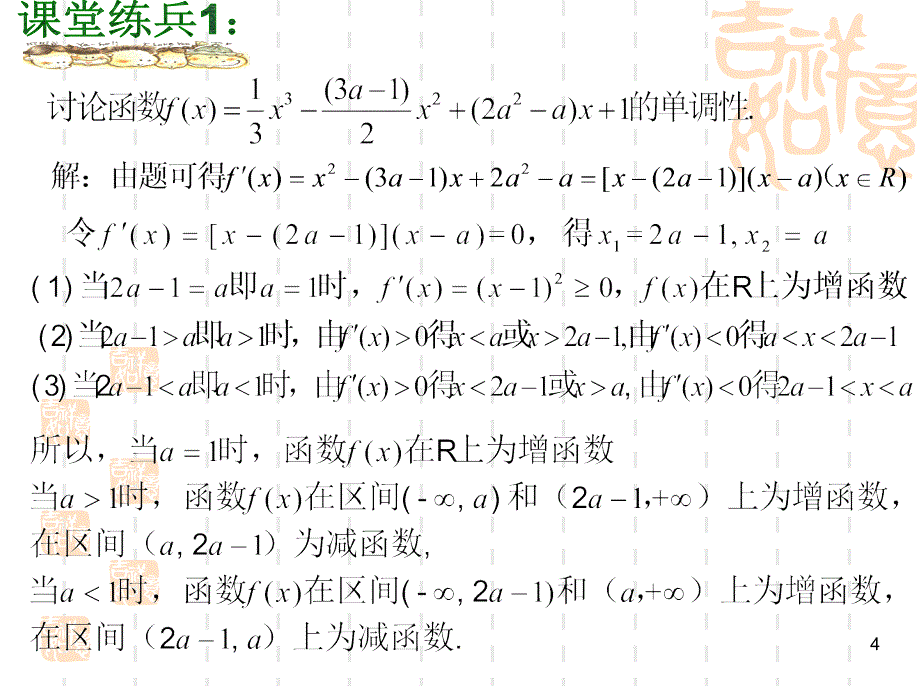 课堂练兵1：
讨论函数f(x)=\frac{1}{3}x^3-\frac{(3a-1)}{2}x^2+(2a^2-a)x+1的单调性.
解：由题可得f'(x)=x^2-(3a-1)x+2a^2-a=[x-(2a-1)](x-a)(x∈R)
令f'(x)=[x-(2a-1)](x-a)=0，得x_1=2a-1,x_2=a
(1)当2a-1=a即a=1时，f'(x)=(x-1)^2≥0，f(x)在R上为增函数
(2)当2a-1>a即a>1时，由f'(x)>0得x<a或x>2a-1,由f'(x)<0得a<x<2a-1
(3)当2a-1<a即a<1时，由f'(x)>0得x<2a-1或x>a,由f'(x)<0得2a-1<x<a
所以，当a=1时，函数f(x)在R上为增函数
当a>1时，函数f(x)在区间(-∞,a)和（2a-1,+∞）上为增函数，
在区间（a,2a-1）为减函数,
当a<1时，函数f(x)在区间(-∞,2a-1)和（a,+∞）上为增函数，
在区间（2a-1,a）上为减函数.
4
吉祥如意